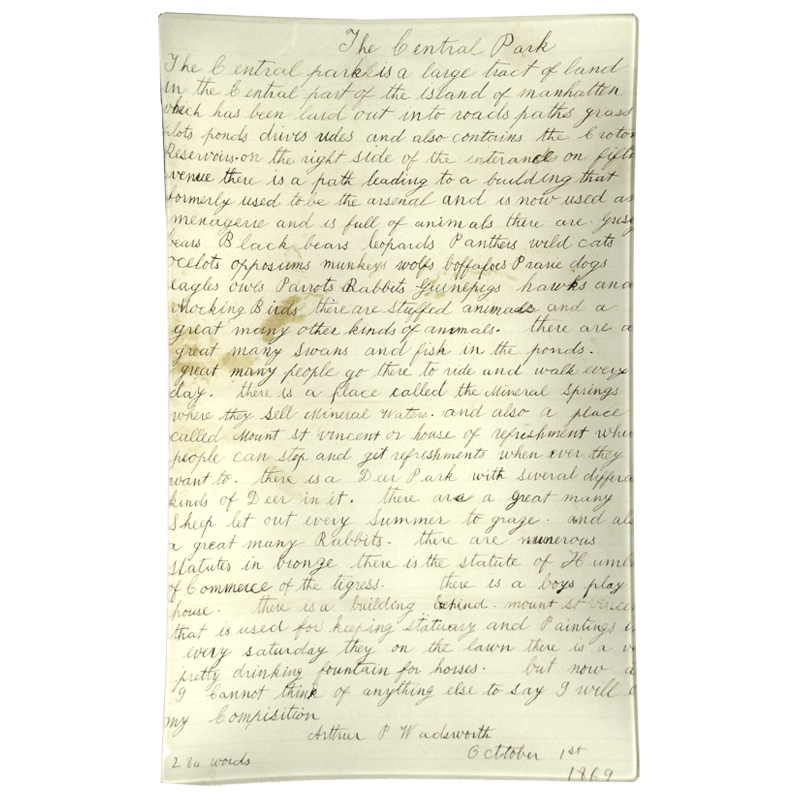 The Central Park
The Central park is a large tract of land
in the Central part of the island of manhatten
which has been laid out into roads paths grass
plots ponds drives rides and also contains the Croton
Reservoirs. on the right side of the enterance on fifth
avenue there is a path leading to a building that
formerly used to be the arsenal and is now used as
menagerie and is full of animals there are. Grisy
bears Black bears leopards Panthers wild cats
ocelots opposums munkeys wolfs boffafoes Prarie dogs
eagles owls Parrots Rabbits Guinepigs hawks and
Mocking Birds there are stuffed animals and a
great many other kinds of animals. there are a
great many swans and fish in the ponds.
great many people go there to ride and walk every
day. there is a place called the Mineral Springs
where they sell Mineral Waters. and also a place
called Mount St Vincent or house of refreshment wher
people can stop and get refreshments when ever they
want to. there is a Deer Park with several differa
kinds of Deer in it. there are a great many
Sheep let out every Summer to graze. and als
a great many Rabbits. there are numerous
statutes in bronze there is the statute of Humb
of Commerce of the tigress. there is a boys play
house. there is a building behind. mount st vincen
that is used for keeping statuary and Paintings
every saturday they on the lawn there is a v
pretty drinking fountain for horses. but now a
I Cannot think of anything else to say I will c
my Compisition
Arthur P Wadsworth
Octtober 1st
1869
words